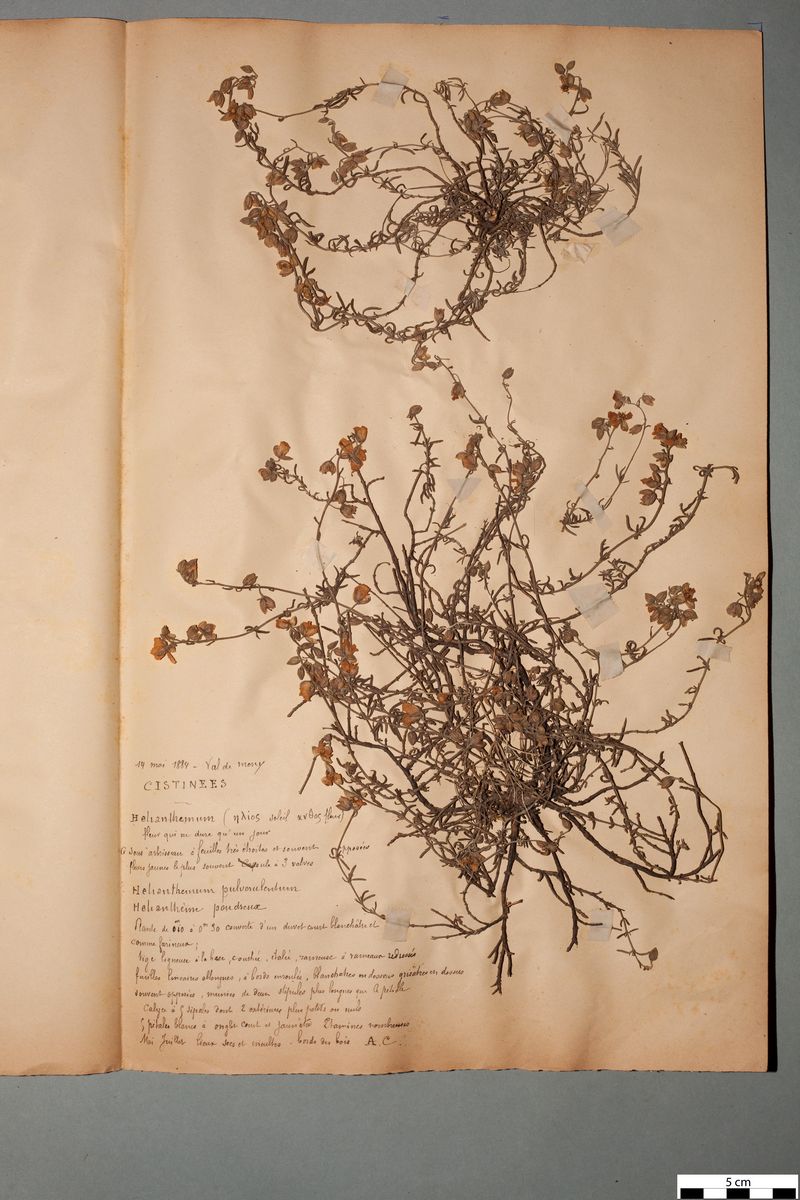 19 mai 1884 - Val de mony
CISTINEES
Helianthemum (ηλιος soleil ανθος fleur)
fleur qui ne dure qu'un jour
G sous arbrisseau à feuilles très étroites et souvent opposées
fleurs jaunes le plus souvent Capsule à 3 valves
Helianthemum pulverulentum
Helianthème poudreux
Plante de 0m10 à 0m30 couverte d'un duvet court blanchâtre et
comme farineux ;
Tige ligneuse à la base, couchée, étalée, rameuse à rameaux redressés
feuilles linéaires oblongues, à bords enroulés, blanchâtres en dessous grisâtres en dessus
souvent opposées, munies de deux stipules plus longues que le pétiole
Calyce à 5 sépales dont 2 extérieurs plus petits ou nuls
5 pétales blancs à onglet court et jaunâtre Etamines nombreuses
Mai Juillet lieux secs et incultes - bords des bois A.C.
5 cm